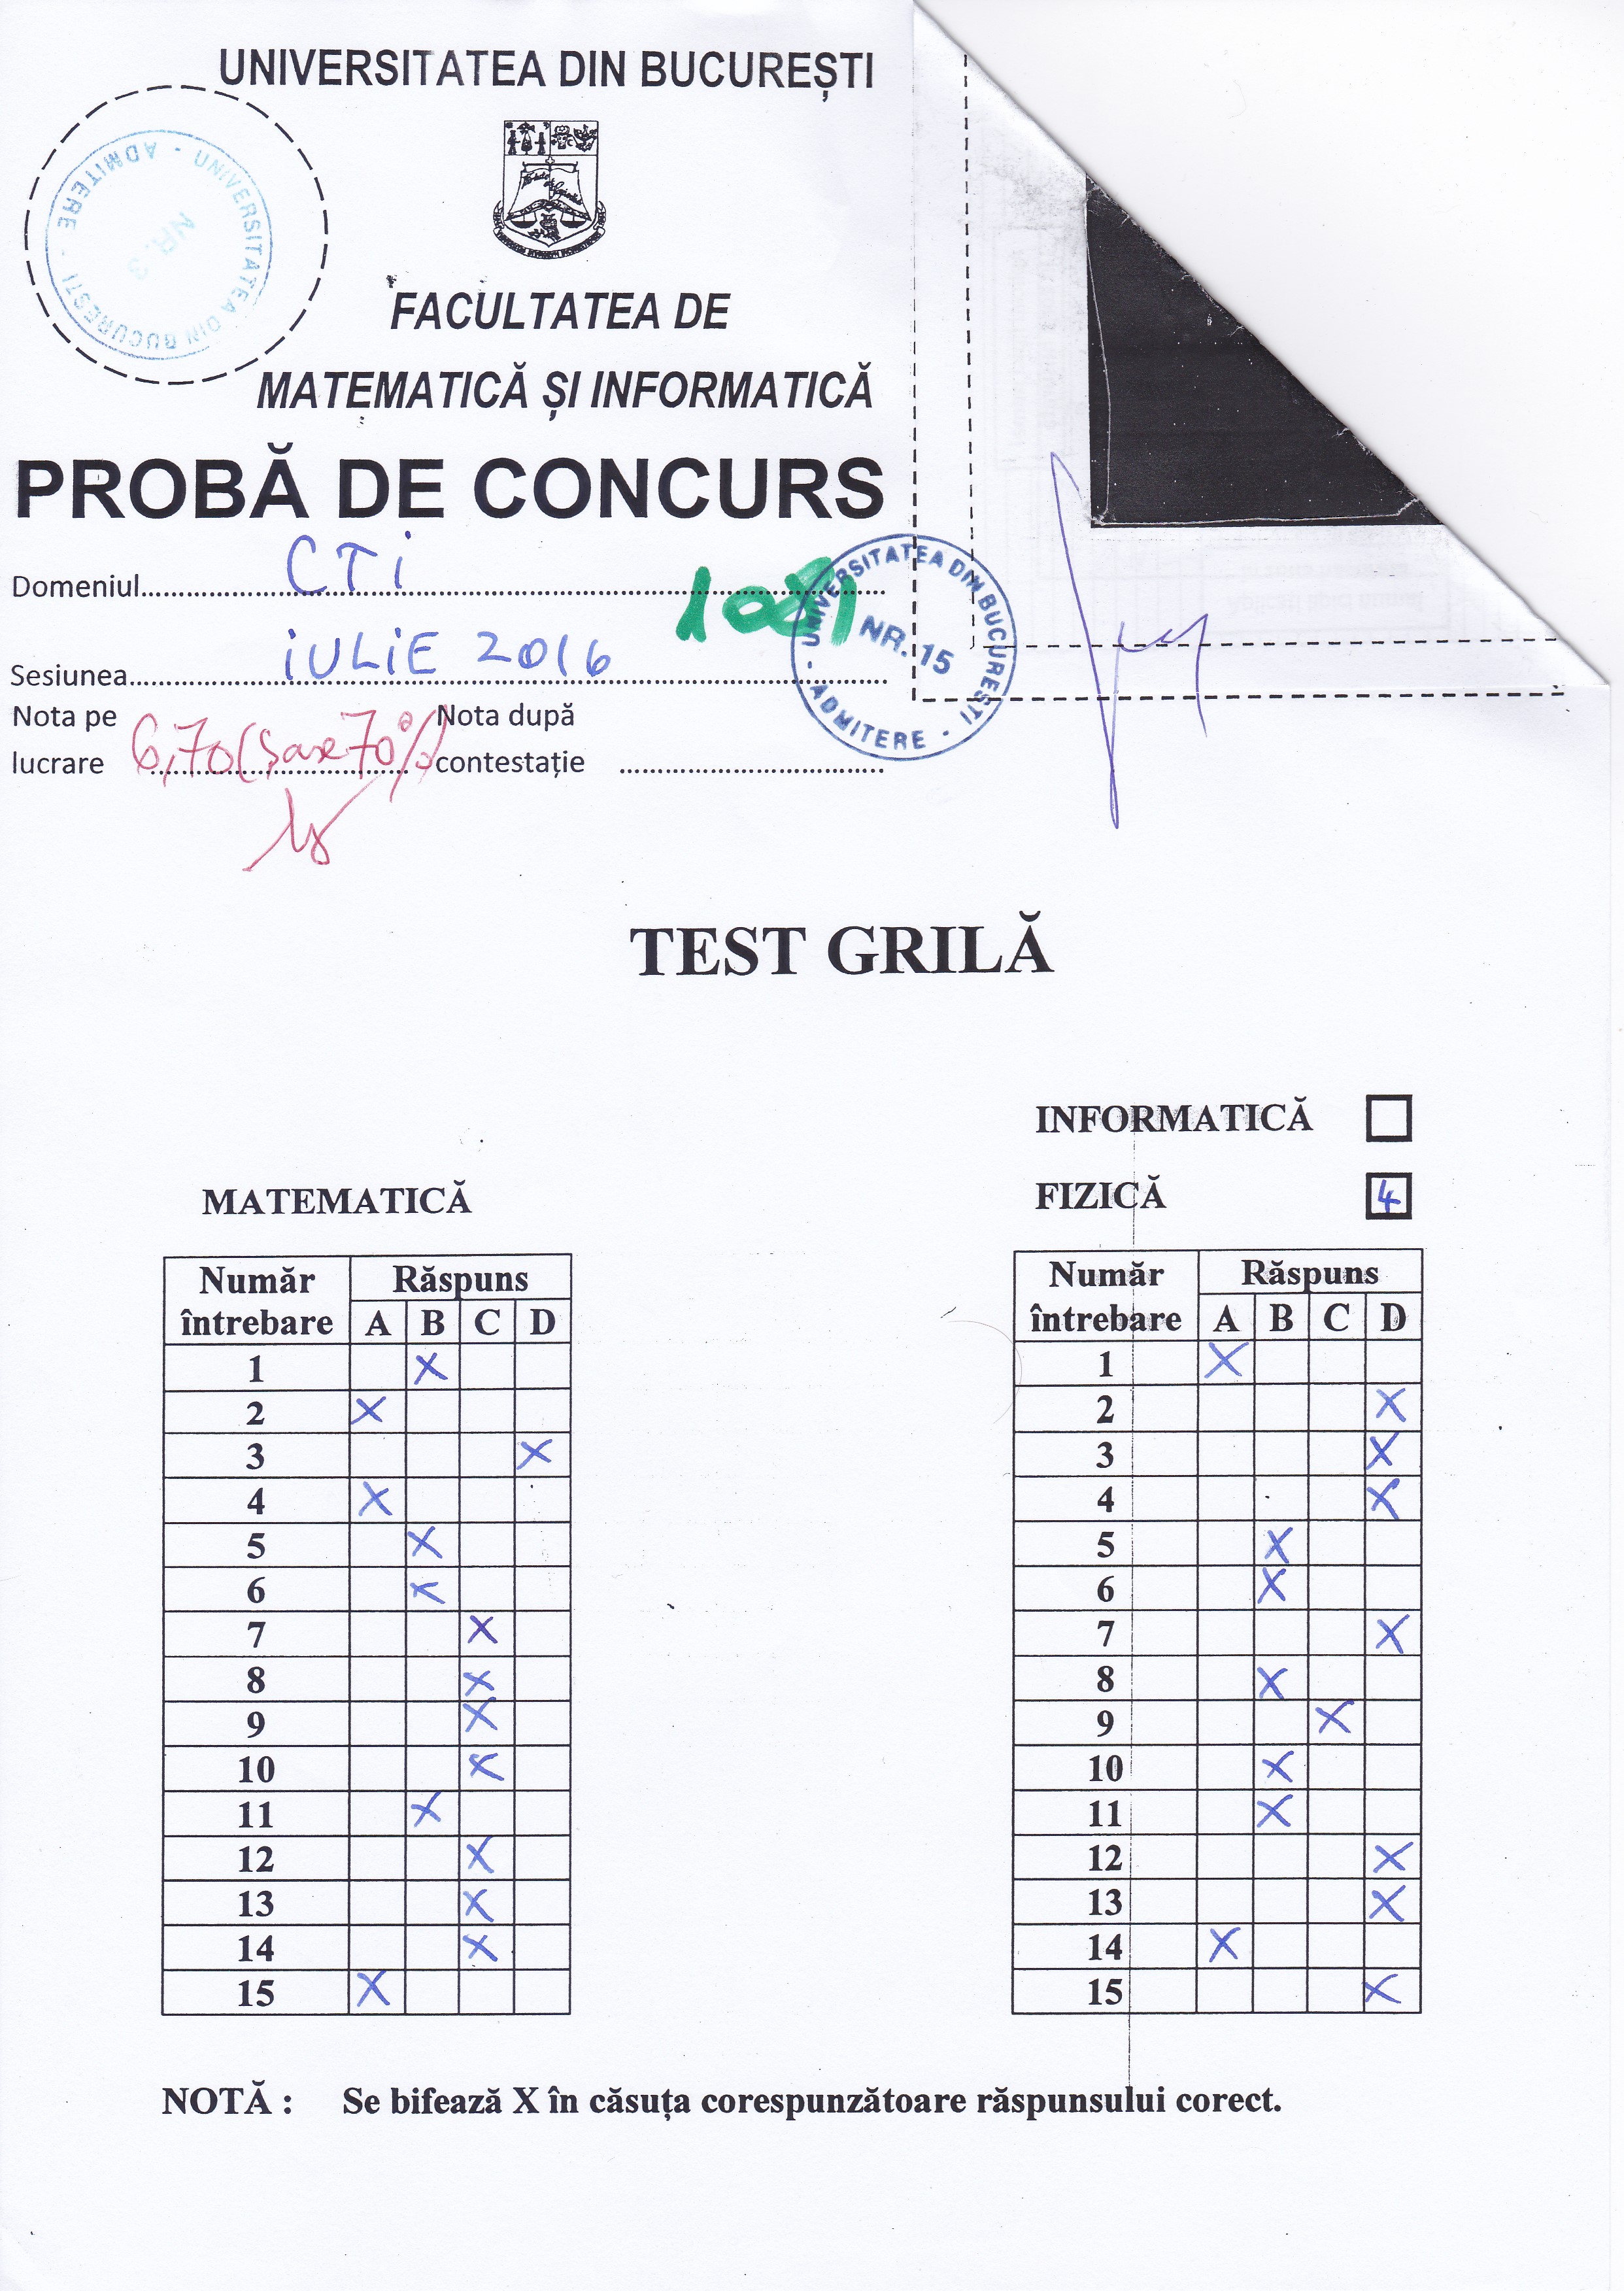 UNIVERSITATEA DIN BUCUREȘTI
UNIVERSITATEA DIN BUCURESTI - ADMITERE -
NR. 3
FACULTATEA DE
MATEMATICĂ ȘI INFORMATICĂ
PROBĂ DE CONCURS
Domeniul CTi
UNIVERSITATEA DIN BUCURESTI - ADMITERE -
NR. 15
Sesiunea iULiE 2016
Nota pe lucrare 6,70 (șase 70%)
Nota după contestație
TEST GRILĂ
INFORMATICĂ
FIZICĂ 4
MATEMATICĂ
Număr întrebare Răspuns
A B C D
1 X
2 X
3 X
4 X
5 X
6 X
7 X
8 X
9 X
10 X
11 X
12 X
13 X
14 X
15 X
Număr întrebare Răspuns
A B C D
1 X
2 X
3 X
4 X
5 X
6 X
7 X
8 X
9 X
10 X
11 X
12 X
13 X
14 X
15 X
NOTĂ : Se bifează X în căsuța corespunzătoare răspunsului corect.